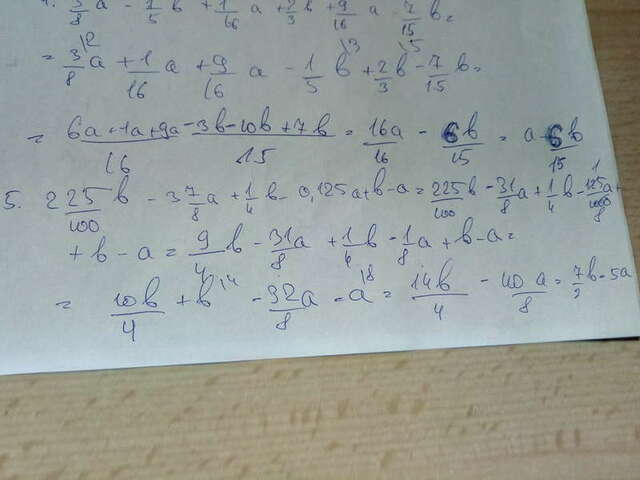 4. 3/8 a - 1/5 b + 1/16 a + 2/3 b + 9/16 a - 7/15 b =
= 3/8 \2 a + 1/16 a + 9/16 a - 1/5 \3 b + 2/3 \5 b - 7/15 b =
= 6a+1a+9a/16 - 3b-10b+7b/15 = 16a/16 - 6b/15 = a - 6b/15
5. 2 25/100 b - 3 7/8 a + 1/4 b - 0,125a + b - a = 225/100 b - 31/8 a + 1/4 b - 125 1/1000 8 a +
+ b - a = 9/4 b - 31/8 a + 1/4 b - 1/8 a + b - a =
= 10b/4 + b \4 - 32a/8 - a \8 = 14b/4 - 40a/8 = 7/2 b - 5a